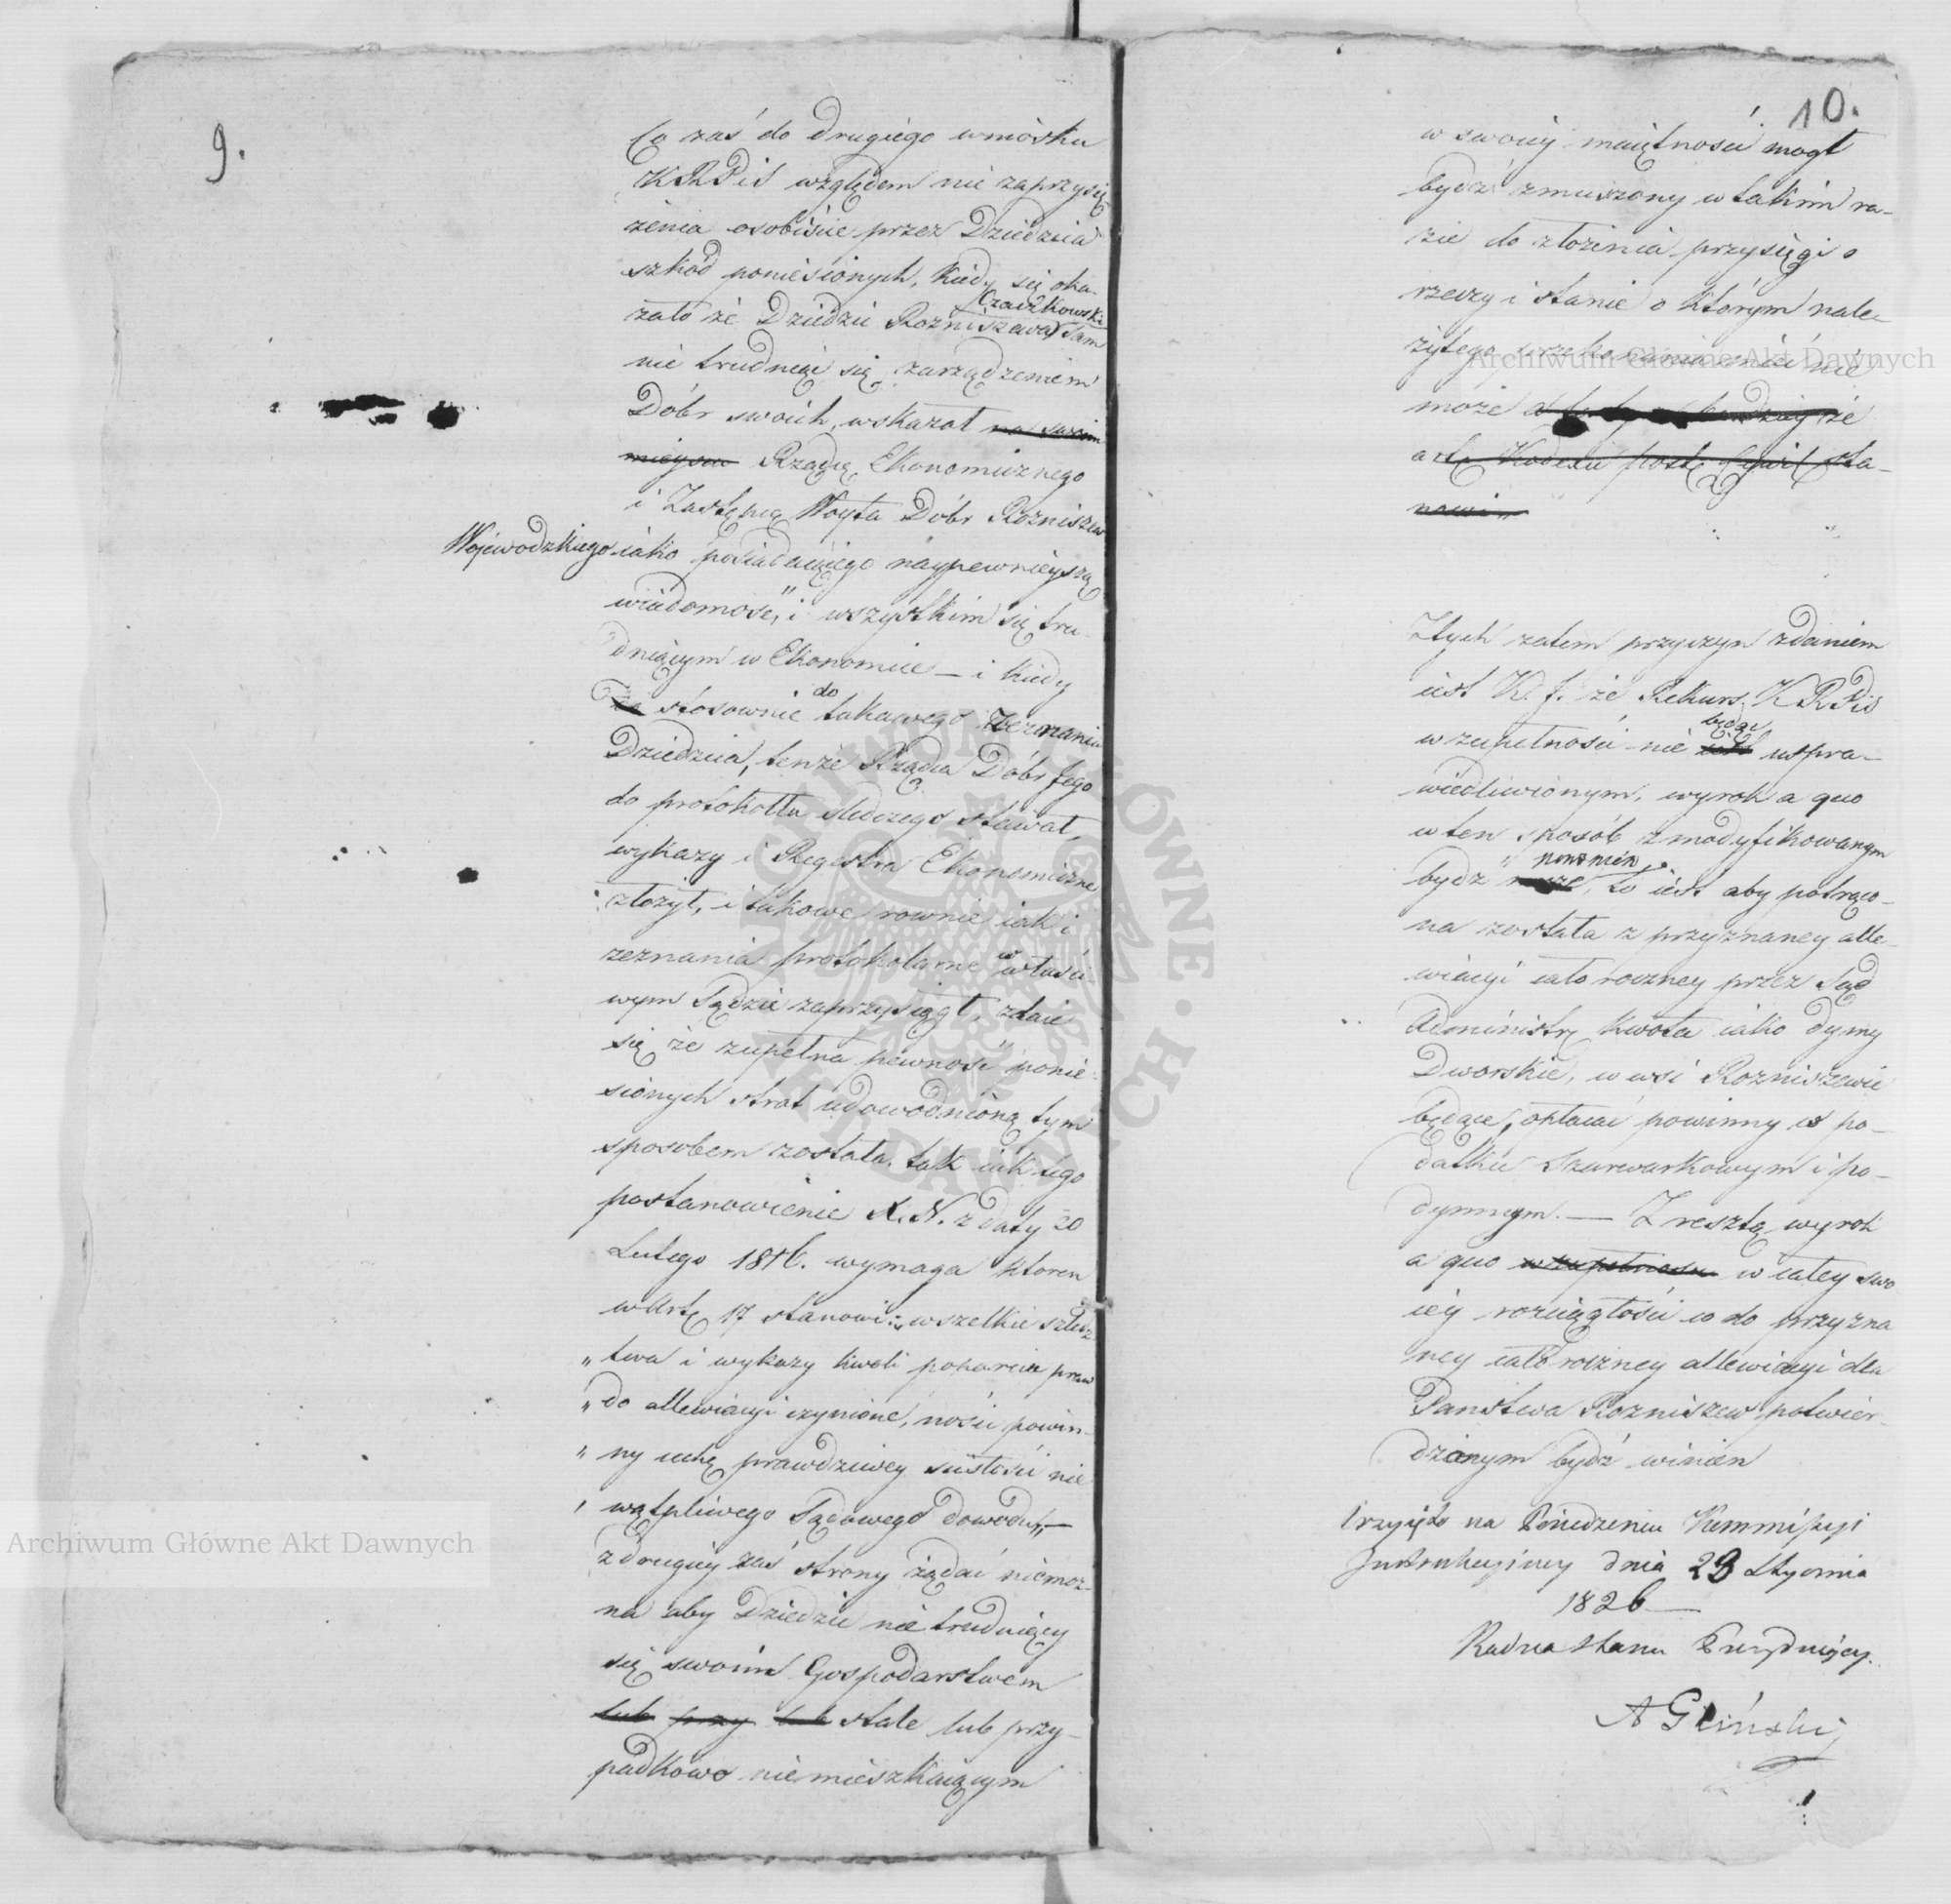 9.
Co zaś do drugiego wniosku
KRPiS względem nie zaprzysię-
żenia osobiście przez Dziedzica
szkód poniesionych, kiedy się oka-
Czaczkowski
zało że Dziedzic Rozniszewa sam
nie trudniąc się zarządzeniem
Dóbr swoich, wskazał na swoim
mieyscu Rządcę Ekonomicznego
i Zastępcę Woyta Dóbr Rozniszew
Wojewodzkiego iako posiadaiącego naypewnieyszą
wiadomość, i wszystkim się tru-
dniącym w Ekonomice — i kiedy
do
stosownie takowego zeznania
Dziedzica, tenże Rządca Dóbr Jego
do protokołu śledczego stawał,
wykazy i Regestra Ekonomiczne
złożył, i takowe rownie iak i
zeznania protokolarne w właści-
wym Sądzie zaprzysiągł, zdaie
się że zupełna pewność ponie-
sionych strat udowodnioną tym
sposobem została, tak iak tego
postanowienie X. N. z daty 20
Lutego 1816. wymaga ktoren
w Art. 17 stanowi: „wszelkie szledz
„ twa i wykazy kwoli poparcia praw
„ do allewiacyi czynione, nosić powin-
„ ny cechę prawdziwey istości nie
„ wątpliwego Sądowego dowodu„—
z drugiey zaś strony żądać niemoż-
na aby Dziedzic nie trudniący
się swoim Gospodarstwem
lub przy lub stale lub przy-
padkowo niemieszkaiącym
10.
w swoiey maiętności mogł
bydź zmuszony w takim ra-
zie do złożenia przysięgi o
rzeczy i stanie o którym nale-
żytego przekonania mieć nie
może że
art. Kodexu post. Cywil. sta-
nowi„
Z tych zatem przyczyn zdaniem
iest K. J. że Rekurs KRPiS
będąc
w zupełności nie iest uspra-
wiedliwionym, wyrok a quo
w ten sposób zmodyfikowanym
powinien
bydź może, to iest aby potrąco-
na została z przyznaney alle-
wiacyi całorocznej przez Sąd
Administr. kwota iako dymy
Dworskie, w wsi Rozniszewie
będące, opłacać powinny w po-
datku Szarwarkowym i po-
dymnym. — Z resztą wyrok
a quo w zupełności w całey swo
iey rozciągłości co do przyzna
ney całorocznej allewiacyi dla
Państwa Rozniszew potwier-
dzonym bydź winien
Przyięto na Posiedzeniu Kommissyi
Instrukcyiney dnia 23 Stycznia
1826 —
Radca Stanu Prezyduiący.
A Gliński
Archiwum Główne Akt Dawnych
Archiwum Główne Akt Dawnych
ARCHIWUM GŁÓWNE AKT DAWNYCH